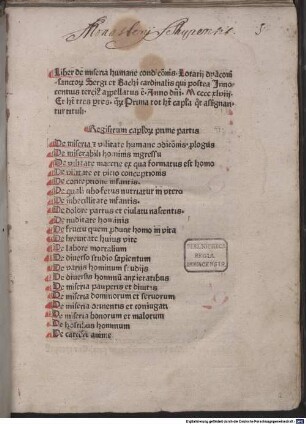 Liber de miseria humane conditiõnis. Lotarij dyaconi
sanctorũ Sergi et Bachi cardinalis qui postea Inno
centius tercius appellatus
Et hʒ tres ptes. Prima tot hʒ capła assignan
tur tituli.
Registrum prime partis
De miseria ⁊ vilitate humane prologus
De miserabili hominis ingressu
De vilitate materie ex qua formatus est homo
De vilitate et vitio conceptionis
De conceptione infantis.
De quali cibo fetus nutriatur in vtero
De imbecillitate infantis.
De dolore partus et eiulatu nascentis.
De nuditate hominis
De fructu quem homo
De breuitate huius vite
De labore mortalium
De diuerso studio sapientum
De varijs hominum studijs
De diuersis hominũ anxietatibus
De miseria pauperis et diuitis
De miseria dominorum et seruorum
De miseria continentis et coniugati
De miseria bonorum et malorum
De hostibus hominum
De carcere anime
BIBLIOTHECA
REGIA
MONACENSIS